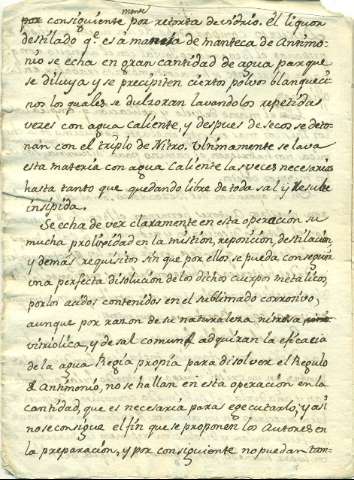 mente
por consiguiente por retorta de vidrio. el liquor
destilado q.e es á manera de manteca de Antimo-
nio se echa en gran cantidad de agua para que
se diluya y se precipiten ciertos polvos blanqueci-
nos los quales se dulzoran lavandolos repetidas
vezes con agua caliente, y despues de secos se deto-
nan con el triplo de Nitro. Ultimamente se lava
esta materia con agua caliente las veces necesarias
hasta tanto que quedando libre de toda sal y Resulte
insipida.
Se echa de ver claramente en esta operacion su
mucha prolixidad en la mistion, reposicion, destilacion,
y demas requisitos sin que por ellos se pueda conseguir
una perfecta disolucion de los dichos cuerpos metalicos,
por los acidos contenidos en el sublimado corrosivo,
aunque por razon de su naturaleza nitrosa
vitriolica, y de sal comun adquiran la eficacia
de la agua Regia propia para disolver el Regulo
de Antimonio, no se hallan en esta operacion en la
cantidad, que es necesaria para egecutarlo, y asi
no se consigue el fin que se proponen los Autores en
la preparacion, y por consiguiente no puedan tam-